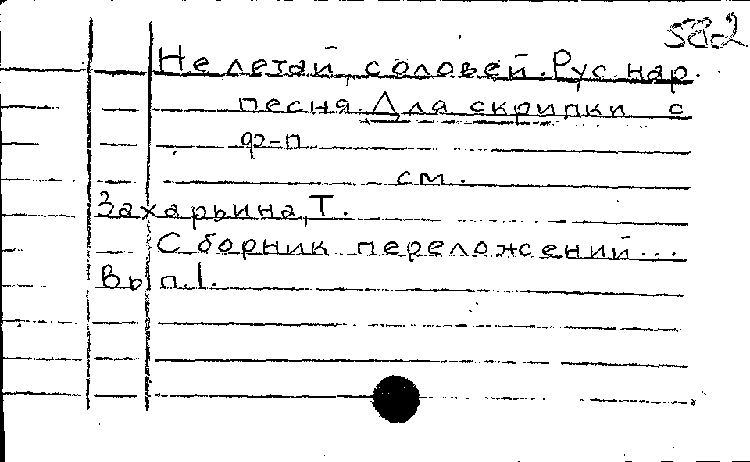 582
Не летай, соловей. Рус. нар.
песня. Для скрипки с
ф-п
см.
Захарьина, Т.
Сборник переложений...
Вып. 1.